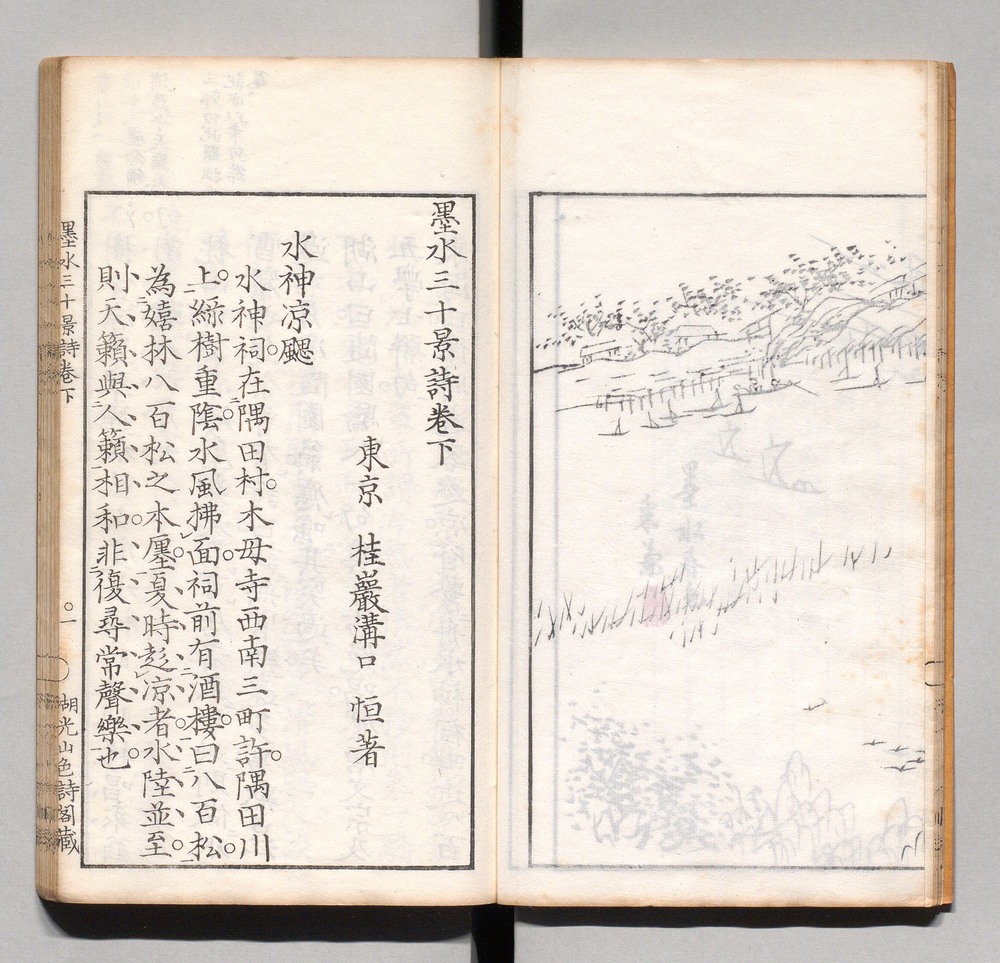 墨水三十景詩卷下
東京 桂巖溝口 恒著
水神凉颸
水神祠。在隅田村。木母寺西南三町許。隅田川
上。綠樹重陰。水風拂面。祠前有酒樓。曰八百松。
為嬉林八百松之本廛。夏時趁凉者。水陸並至。
小則天籟與人籟相和。非復尋常聲樂也。
墨水三十景詩卷下
〇一
湖光山色詩閣藏